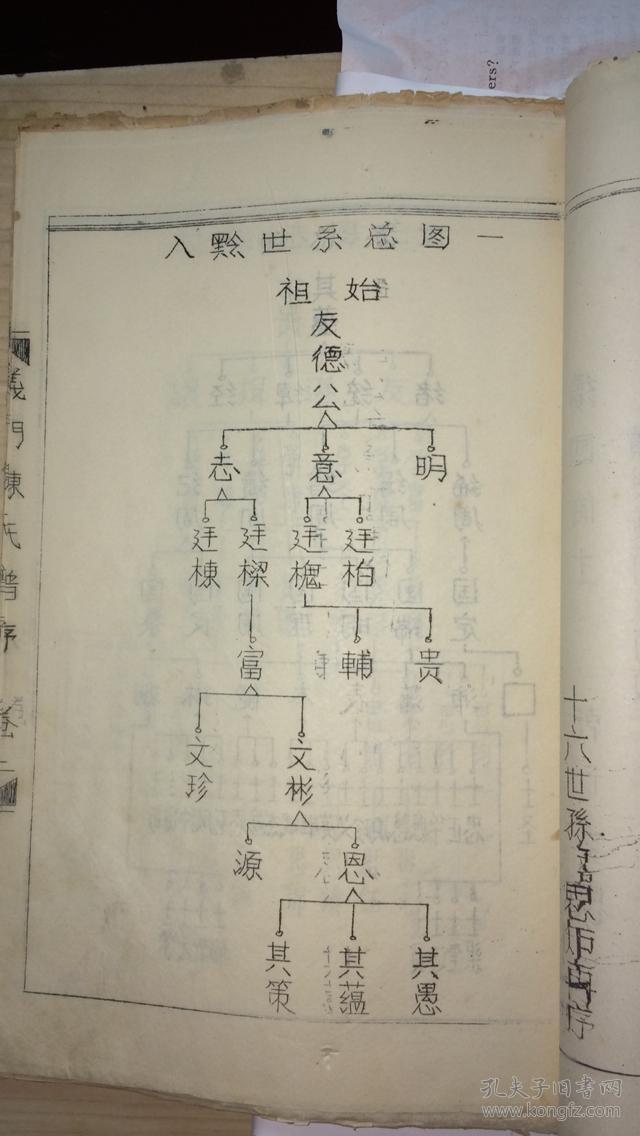 入黔世系总图一
始祖
友德公
明
意
志
廷柏
廷槐
廷樑
廷棟
贵
輔
富
文彬
文珍
恩
源
其愚
其蕴
其策
義門陳氏譜序
卷二
十六世孫
序
ers?
孔夫子旧书网
www.kongfz.com